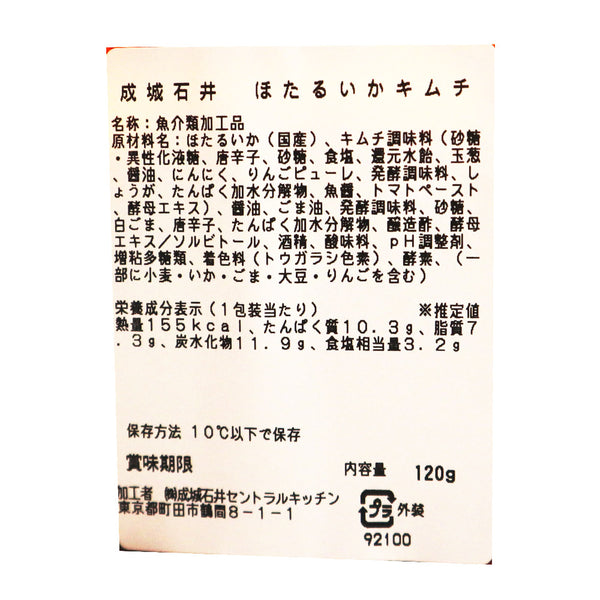 成城石井　ほたるいかキムチ
名称：魚介類加工品
原材料名：ほたるいか（国産）、キムチ調味料（砂糖
・異性化液糖、唐辛子、砂糖、食塩、還元水飴、玉葱
、醤油、にんにく、りんごピューレ、発酵調味料、し
ょうが、たんぱく加水分解物、魚醤、トマトペースト
、酵母エキス）、醤油、ごま油、発酵調味料、砂糖、
白ごま、唐辛子、たんぱく加水分解物、醸造酢、酵母
エキス／ソルビトール、酒精、酸味料、ｐH調整剤、
増粘多糖類、着色料（トウガラシ色素）、酵素、（一
部に小麦・いか・ごま・大豆・りんごを含む）
栄養成分表示（1包装当たり）　※推定値
熱量155kcal、たんぱく質10.3g、脂質7
.3g、炭水化物11.9g、食塩相当量3.2g
保存方法 10℃以下で保存
賞味期限　内容量 120g
加工者 ㈱成城石井セントラルキッチン
東京都町田市鶴間8-1-1
プラ 外装
92100